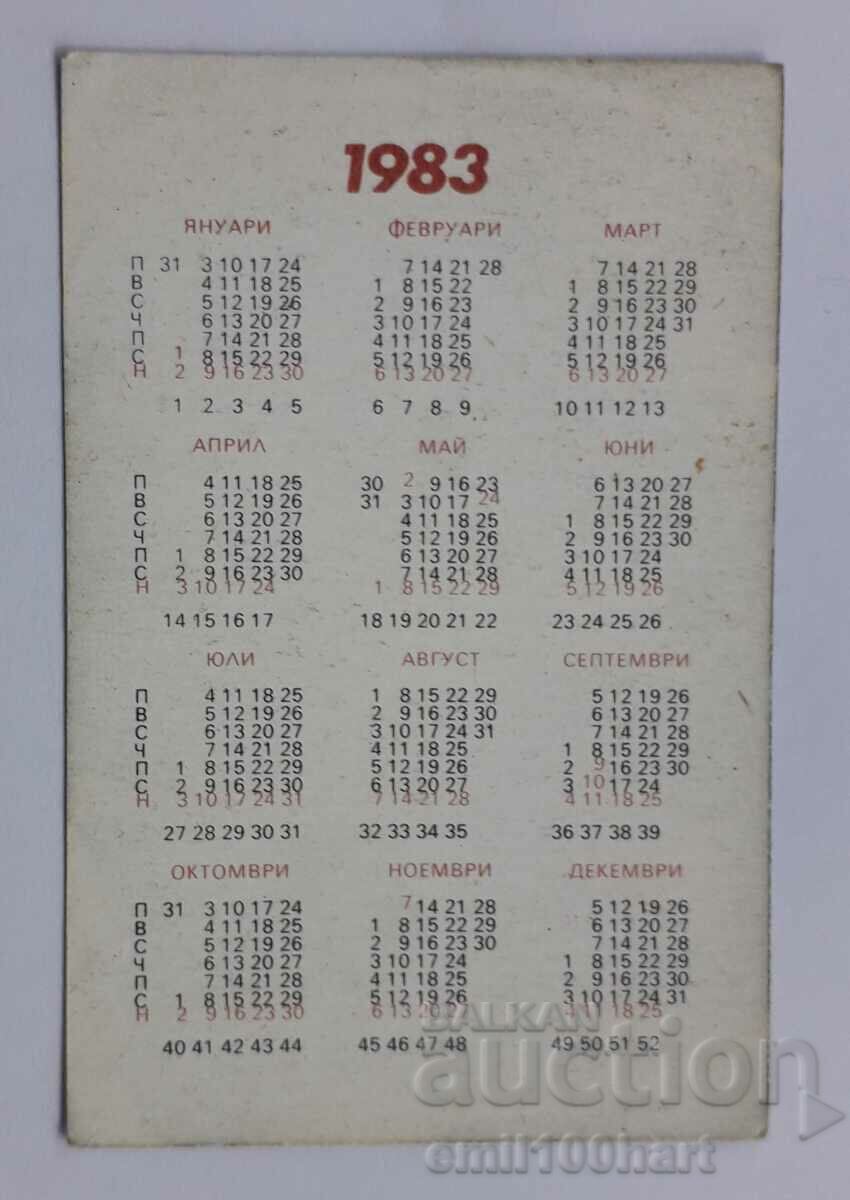 1983
ЯНУАРИ ФЕВРУАРИ МАРТ
П 31 3 10 17 24 7 14 21 28 7 14 21 28
В 4 11 18 25 1 8 15 22 1 8 15 22 29
С 5 12 19 26 2 9 16 23 2 9 16 23 30
Ч 6 13 20 27 3 10 17 24 3 10 17 24 31
П 7 14 21 28 4 11 18 25 4 11 18 25
С 1 8 15 22 29 5 12 19 26 5 12 19 26
Н 2 9 16 23 30 6 13 20 27 6 13 20 27
1 2 3 4 5 6 7 8 9 10 11 12 13
АПРИЛ МАЙ ЮНИ
П 4 11 18 25 30 2 9 16 23 6 13 20 27
В 5 12 19 26 31 3 10 17 24 7 14 21 28
С 6 13 20 27 4 11 18 25 1 8 15 22 29
Ч 7 14 21 28 5 12 19 26 2 9 16 23 30
П 1 8 15 22 29 6 13 20 27 3 10 17 24
С 2 9 16 23 30 7 14 21 28 4 11 18 25
Н 3 10 17 24 1 8 15 22 29 5 12 19 26
14 15 16 17 18 19 20 21 22 23 24 25 26
ЮЛИ АВГУСТ СЕПТЕМВРИ
П 4 11 18 25 1 8 15 22 29 5 12 19 26
В 5 12 19 26 2 9 16 23 30 6 13 20 27
С 6 13 20 27 3 10 17 24 31 7 14 21 28
Ч 7 14 21 28 4 11 18 25 1 8 15 22 29
П 1 8 15 22 29 5 12 19 26 2 9 16 23 30
С 2 9 16 23 30 6 13 20 27 3 10 17 24
Н 3 10 17 24 31 7 14 21 28 4 11 18 25
27 28 29 30 31 32 33 34 35 36 37 38 39
ОКТОМВРИ НОЕМВРИ ДЕКЕМВРИ
П 31 3 10 17 24 7 14 21 28 5 12 19 26
В 4 11 18 25 1 8 15 22 29 6 13 20 27
С 5 12 19 26 2 9 16 23 30 7 14 21 28
Ч 6 13 20 27 3 10 17 24 1 8 15 22 29
П 7 14 21 28 4 11 18 25 2 9 16 23 30
С 1 8 15 22 29 5 12 19 26 3 10 17 24 31
Н 2 9 16 23 30 6 13 20 27 4 11 18 25
40 41 42 43 44 45 46 47 48 49 50 51 52
BALKAN
auction
emil100hart